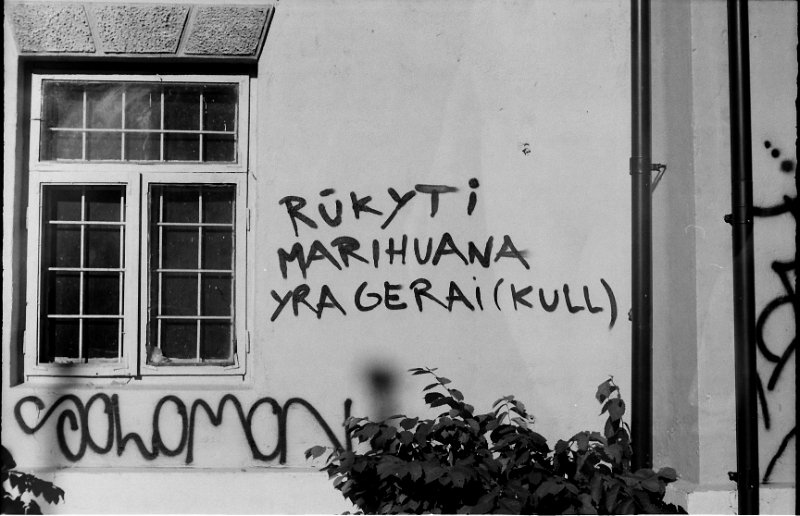 RŪKYTi
MARIHUANA
YRA GERAi (KULL)
SOLOMON